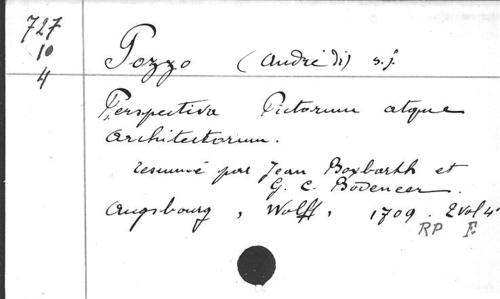 727
10
4
Pozzo (André di) s.j.
Perspectiva Pictorum atque
Architectorum.
resumé par Jean Boxbarth et
G. C. Bodeneer.
Augsbourg, Wolff, 1709. 2 vol 4°
RP F.